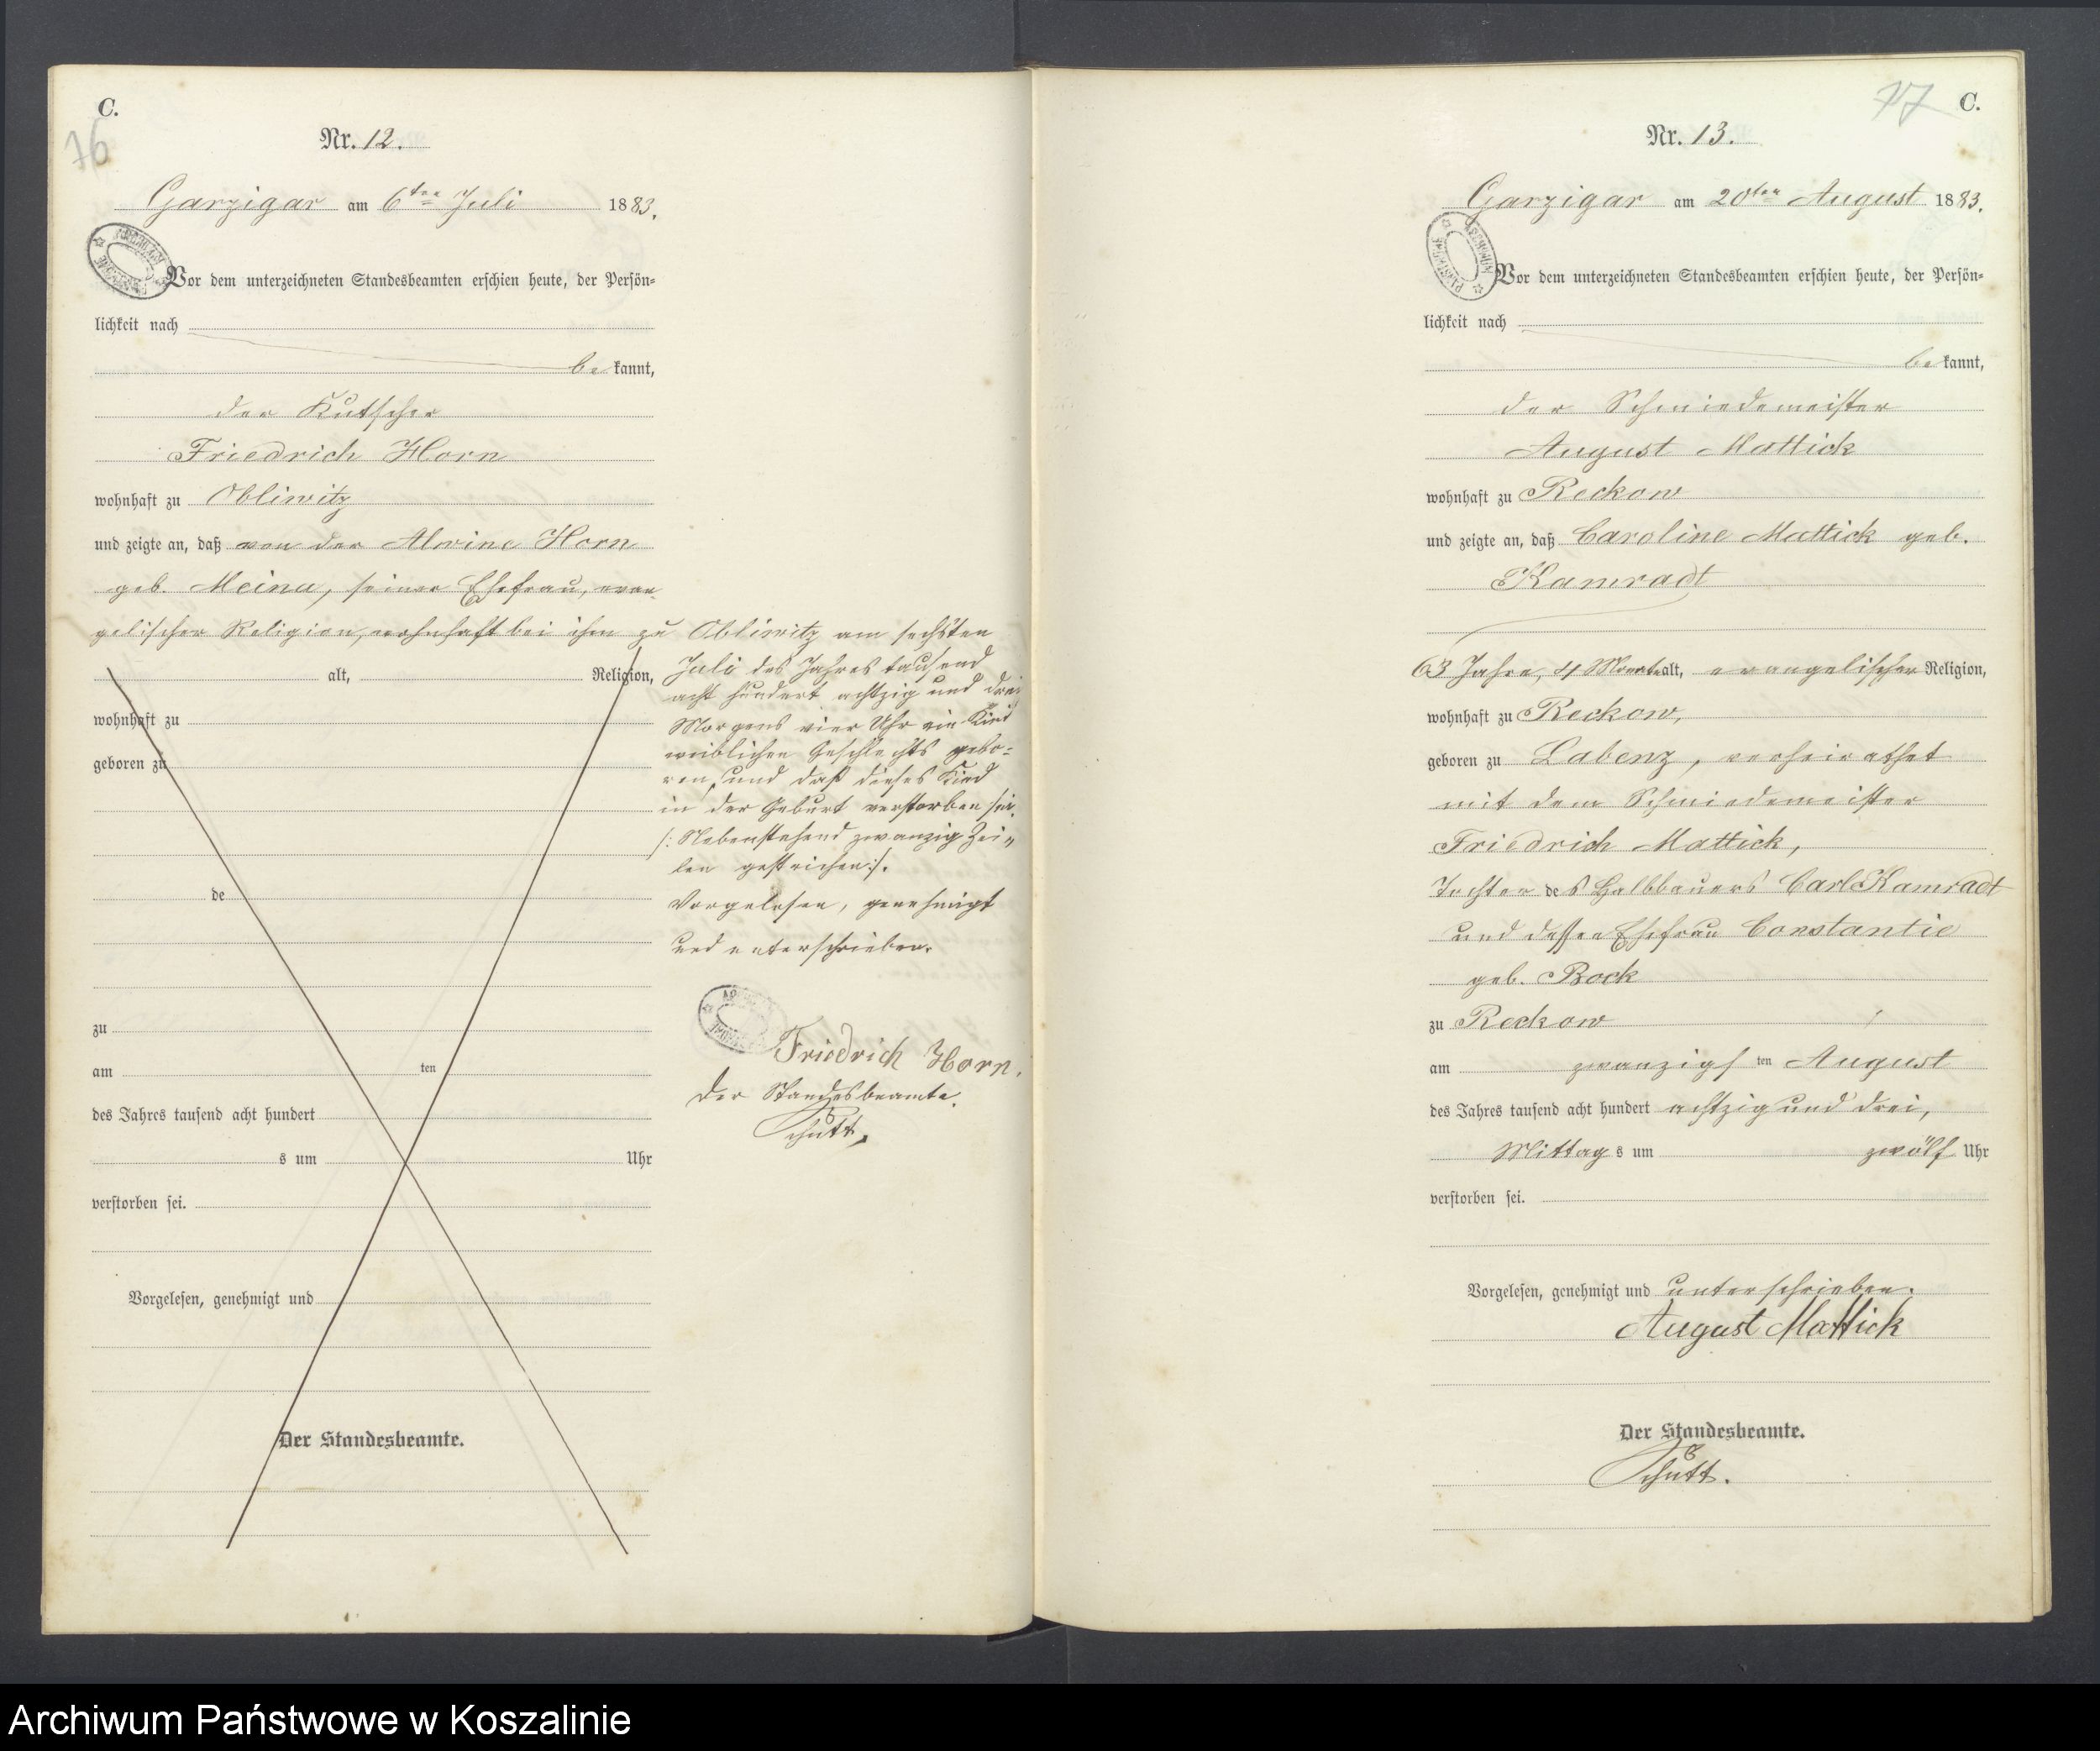 C.
76
Nr. 12.
Garzigar am 6ten Juli 1883.
Vor dem unterzeichneten Standesbeamten erschien heute, der Persön-
lichkeit nach
be kannt,
der Kutscher
Friedrich Horn
wohnhaft zu Obliwitz
und zeigte an, daß von der Alwine Horn
geb. Meina, seiner Ehefrau, evan-
gelischer Religion, wohnhaft bei ihm zu Obliwitz am sechsten
Juli des Jahres tausend
acht hundert achtzig und drei
Morgens vier Uhr ein Kind
weiblichen Geschlechts gebo-
ren, und daß dieses Kind
in der Geburt verstorben sei.
/: Nebenstehend zwanzig Zei-
len gestrichen :/.
Vorgelesen, genehmigt
und unterschrieben.
Friedrich Horn.
Der Standesbeamte.
Schütt.
alt, Religion,
wohnhaft zu
geboren zu
de
zu
am ten
des Jahres tausend acht hundert
s um Uhr
verstorben sei.
Vorgelesen, genehmigt und
Der Standesbeamte.
77 C.
Nr. 13.
Garzigar am 20ten August 1883.
Vor dem unterzeichneten Standesbeamten erschien heute, der Persön-
lichkeit nach
be kannt,
der Schmiedemeister
August Mattick
wohnhaft zu Reckow
und zeigte an, daß Caroline Mattick geb.
Kamradt
63 Jahre, 4 Monate alt, evangelischer Religion,
wohnhaft zu Reckow,
geboren zu Labenz, verheirathet
mit dem Schmiedemeister
Friedrich Mattick,
Tochter des Halbbauers Carl Kamradt
und dessen Ehefrau Constantie
geb. Bock
zu Reckow
am zwanzigs ten August
des Jahres tausend acht hundert achtzig und drei,
Mittag s um zwölf Uhr
verstorben sei.
Vorgelesen, genehmigt und unterschrieben.
August Mattick
Der Standesbeamte.
Schütt.
Archiwum Państwowe w Koszalinie